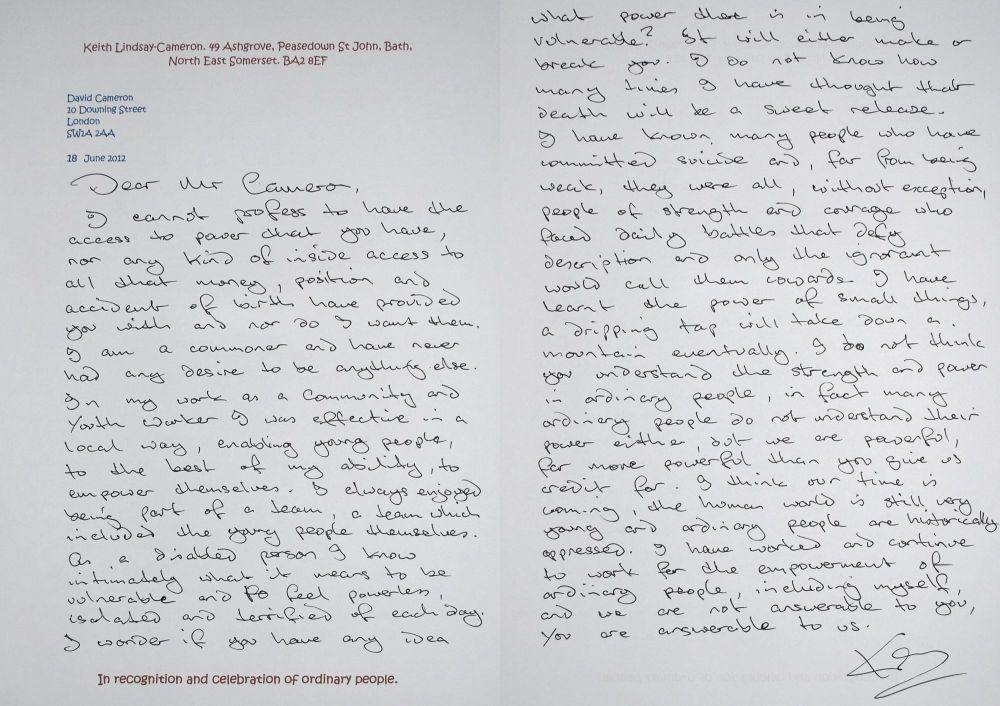 Keith Lindsay-Cameron. 49 Ashgrove, Peasedown St John, Bath,
North East Somerset. BA2 8EF
David Cameron
10 Downing Street
London
SW1A 2AA
18 June 2012
Dear Mr Cameron,
I cannot profess to have the
access to power that you have,
nor any kind of inside access to
all that money, position and
accident of birth have provided
you with and nor do I want them.
I am a commoner and have never
had any desire to be anything else.
In my work as a Community and
Youth Worker I was effective in a
local way, enabling young people,
to the best of my ability, to
empower themselves. I always enjoyed
being part of a team, a team which
included the young people themselves.
As a disabled person I know
intimately what it means to be
vulnerable and to feel powerless,
isolated and terrified of each day.
I wonder if you have any idea
In recognition and celebration of ordinary people.
what power there is in being
vulnerable? It will either make or
break you. I do not know how
many times I have thought that
death will be a sweet release.
I have known many people who have
committed suicide and, far from being
weak, they were all, without exception,
people of strength and courage who
faced daily battles that defy
description and only the ignorant
would call them cowards. I have
learnt the power of small things,
a dripping tap will take down a
mountain eventually. I do not think
you understand the strength and power
in ordinary people, in fact many
ordinary people do not understand their
power either, but we are powerful,
far more powerful than you give us
credit for. I think our time is
coming, the human world is still very
young and ordinary people are historically
oppressed. I have worked and continue
to work for the empowerment of
ordinary people, including myself,
and we are not answerable to you,
you are answerable to us.